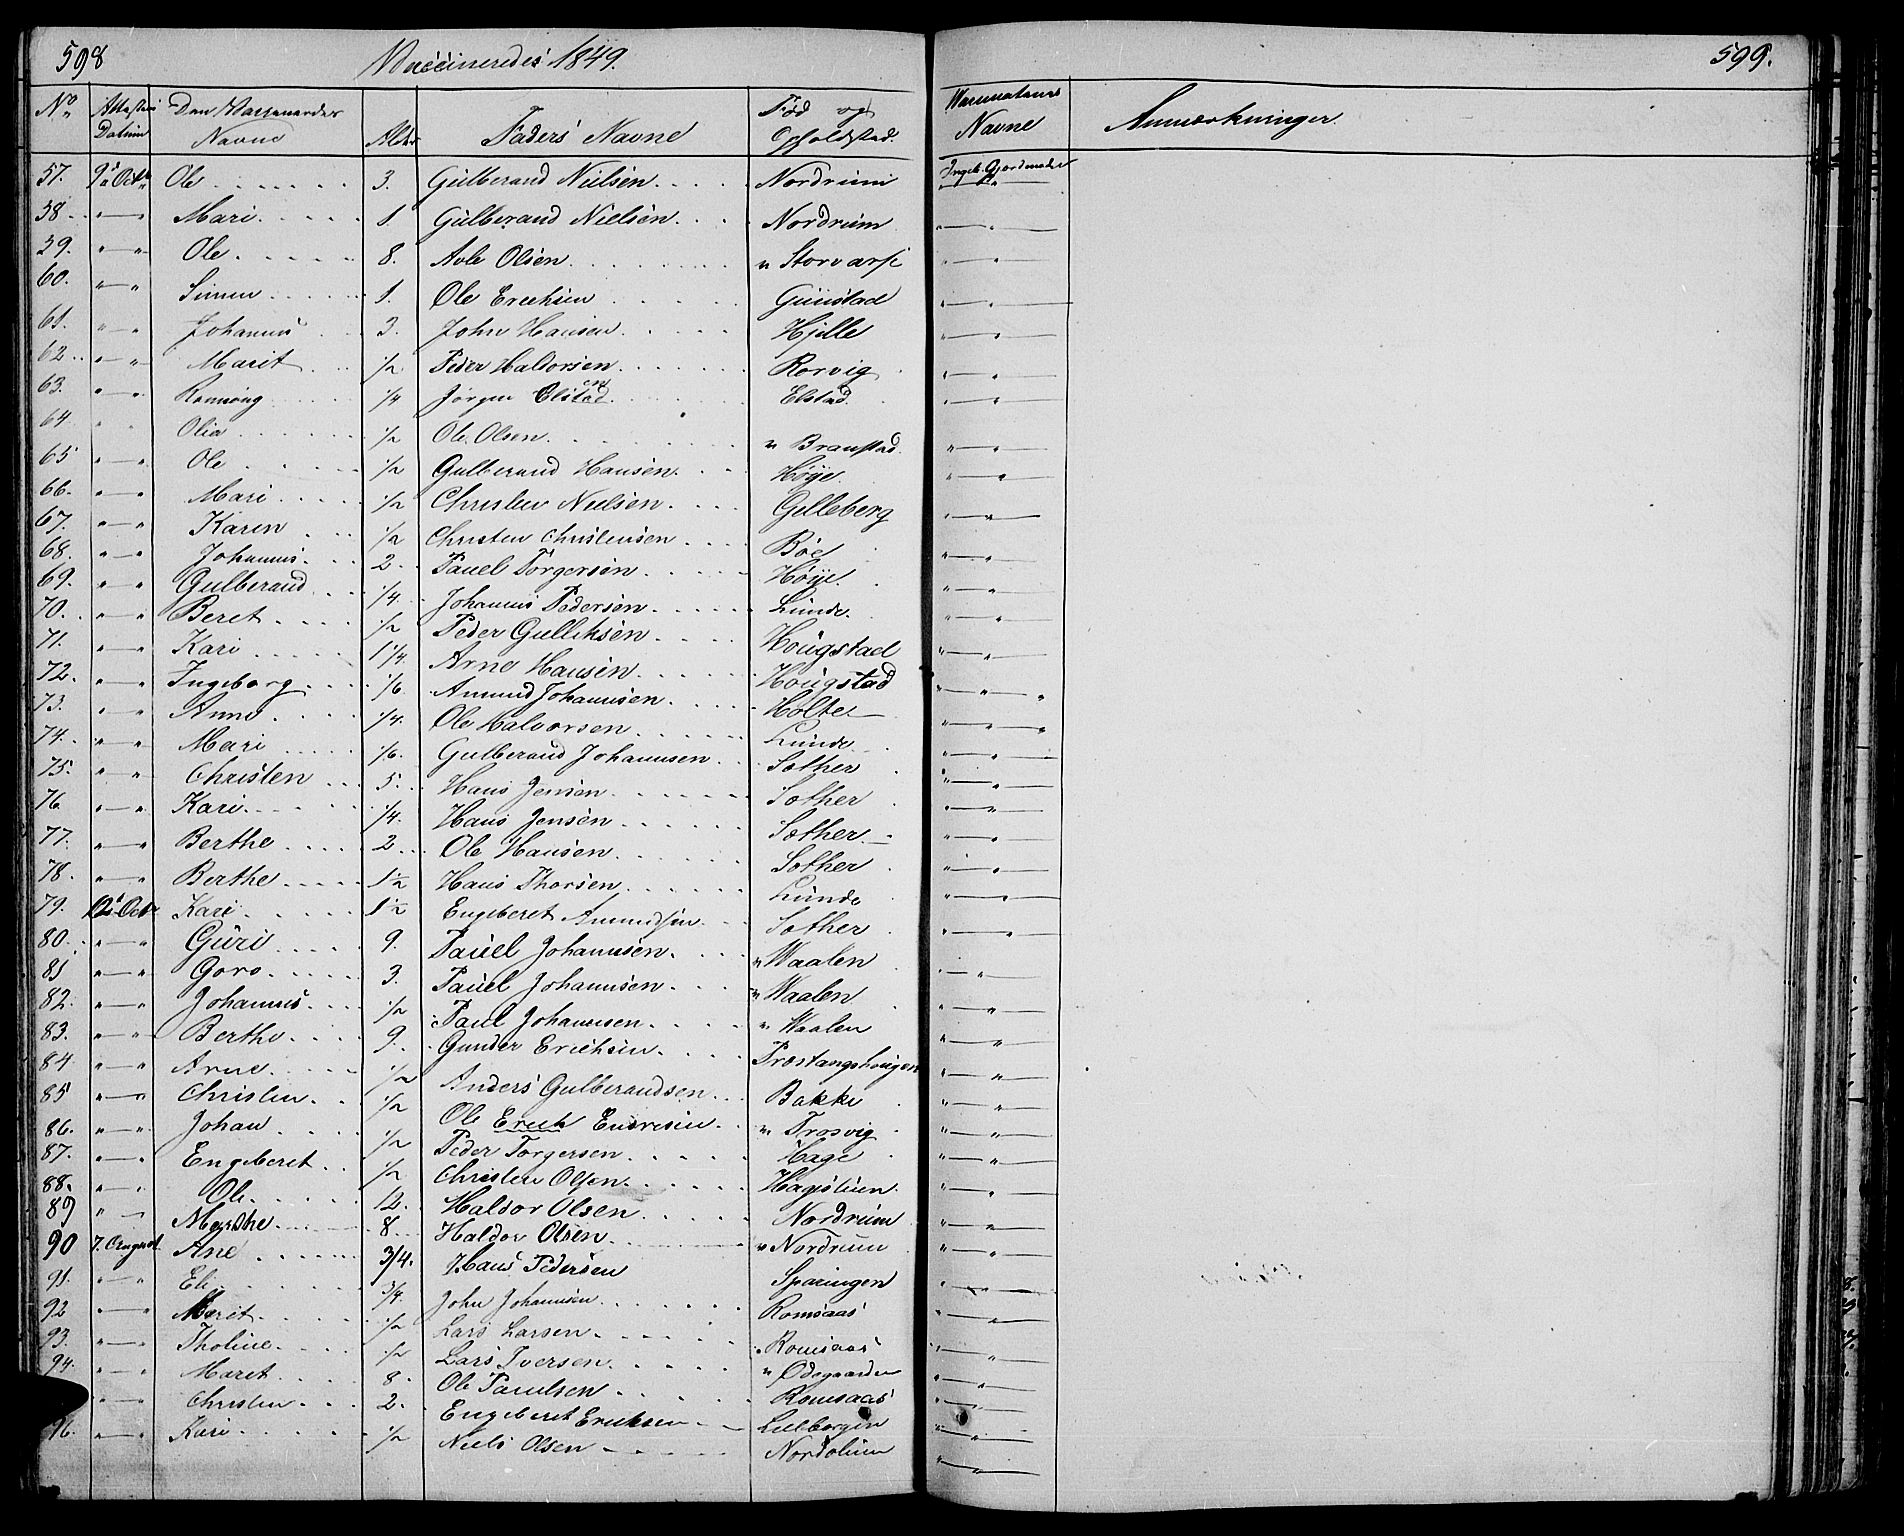 598 Vaccineredes 1849.
No Attestens Datum Den Vaccineredes Navne Alder Faders Navne Fød og Opholdstad.
57. 9de Octb Ole 3. Gulberand Nielsen Nordrum
58 " — " Mari 1. Gulberand Nielsen Nordrum
59. " " Ole 8. Avle Olsen " Storvarp
60. " — " Simen 1. Ole Erechsen Gunstad
61. " — " Johannes 3. John Hansen Hjelle
62 " — " Marit 1/2 Peder Haldorsen Rorvig
63. " — " Rønnoug 1/4 Jörgen Elstad Elstad
64 " " Olia 1/2 Ole Olsen " Branstad
65 " — " Ole 1/2 Gulberand Hansen Høye
66. " — " Mari 1/2 Christen Nielsen Gilleberg
67. " — " Karen 1/2 Christen Christensen Böe
68. " — " Johannes 2 Pauel Torgersen Høye
69. " — " Gulberand 1/4 Johannes Pedersen Lunde
70. " — " Beret 1/2 Peder Gulliksen Hougstad
71. " — " Kari 1 1/4 Arne Hansen Hougstad
72. " — " Ingeborg 1/6 Amund Johannesen Holte
73. " — " Anne 1/4 Ole Halvorsen Lunde
74. " — " Mari 1/6. Gulberand Johannesen Sother
75. " " Christen 5. Hans Jensen Sother
76 " — " Kari 1/4 Hans Jensen Sother
77. " — " Berthe 2 Ole Hansen Sother
78. " — " Berthe 1 1/2 Hans Thorsen Lunde
79. Octr Kari 1 1/2 Engeberet Amundsen Sother
80. " — " Guri 9. Pauel Johannesen " Waalen
81 " — " Goro 3. Pauel Johannesen " Waalen
82. " — " Johannes 1/2 Paul Johannesen " Waalen
83. " — " Berthe 9. Gunder Erichsen Prostangshougen
84. " — " Arne 1/2 Anders Gulberandsen Bakke
85 " — " Christen 1/2 Ole Erich Endresen " Trosvig
86. " — " Johan 1/2 Peder Torgersen Hage
87. " — " Engeberet 1/2 Christen Olsen Hagestuen
88. " — " Ole 12. Haldor Olsen Nordrum
89 " — Marthe 8 Haldor Olsen " Nordrum
90 7. August Ane 3/4. Hans Pedersen Sparingen
91. " — " Eli 3/4. John Johannesen Romsaas
92 " — " Marit 1/2 Lars Larsen Romsaas
93. " — " Tholine 1/2 Lars Iversen " Odegaarden
94. " — " Maret 8. Ole Paulsen Romsaas
" — " Christen 2. Engeberet Eriksen Lilborgen
96. " — " Kari 1/2 Niels Olsen
599.
Navne Anmærkninger
Ingeb. Gjordmoder